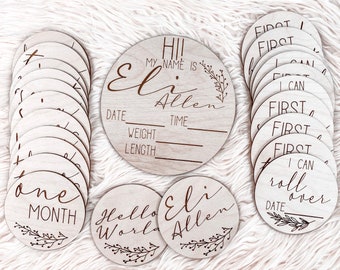 HI!
MY NAME IS
Eli
Allen
DATE TIME
WEIGHT
LENGTH
one
MONTH
Hello
World
Eli
Allen
FIRST
I CAN
FIRST
I CAN
FIRST
I CAN
FIRST
I CAN
roll
over
DATE